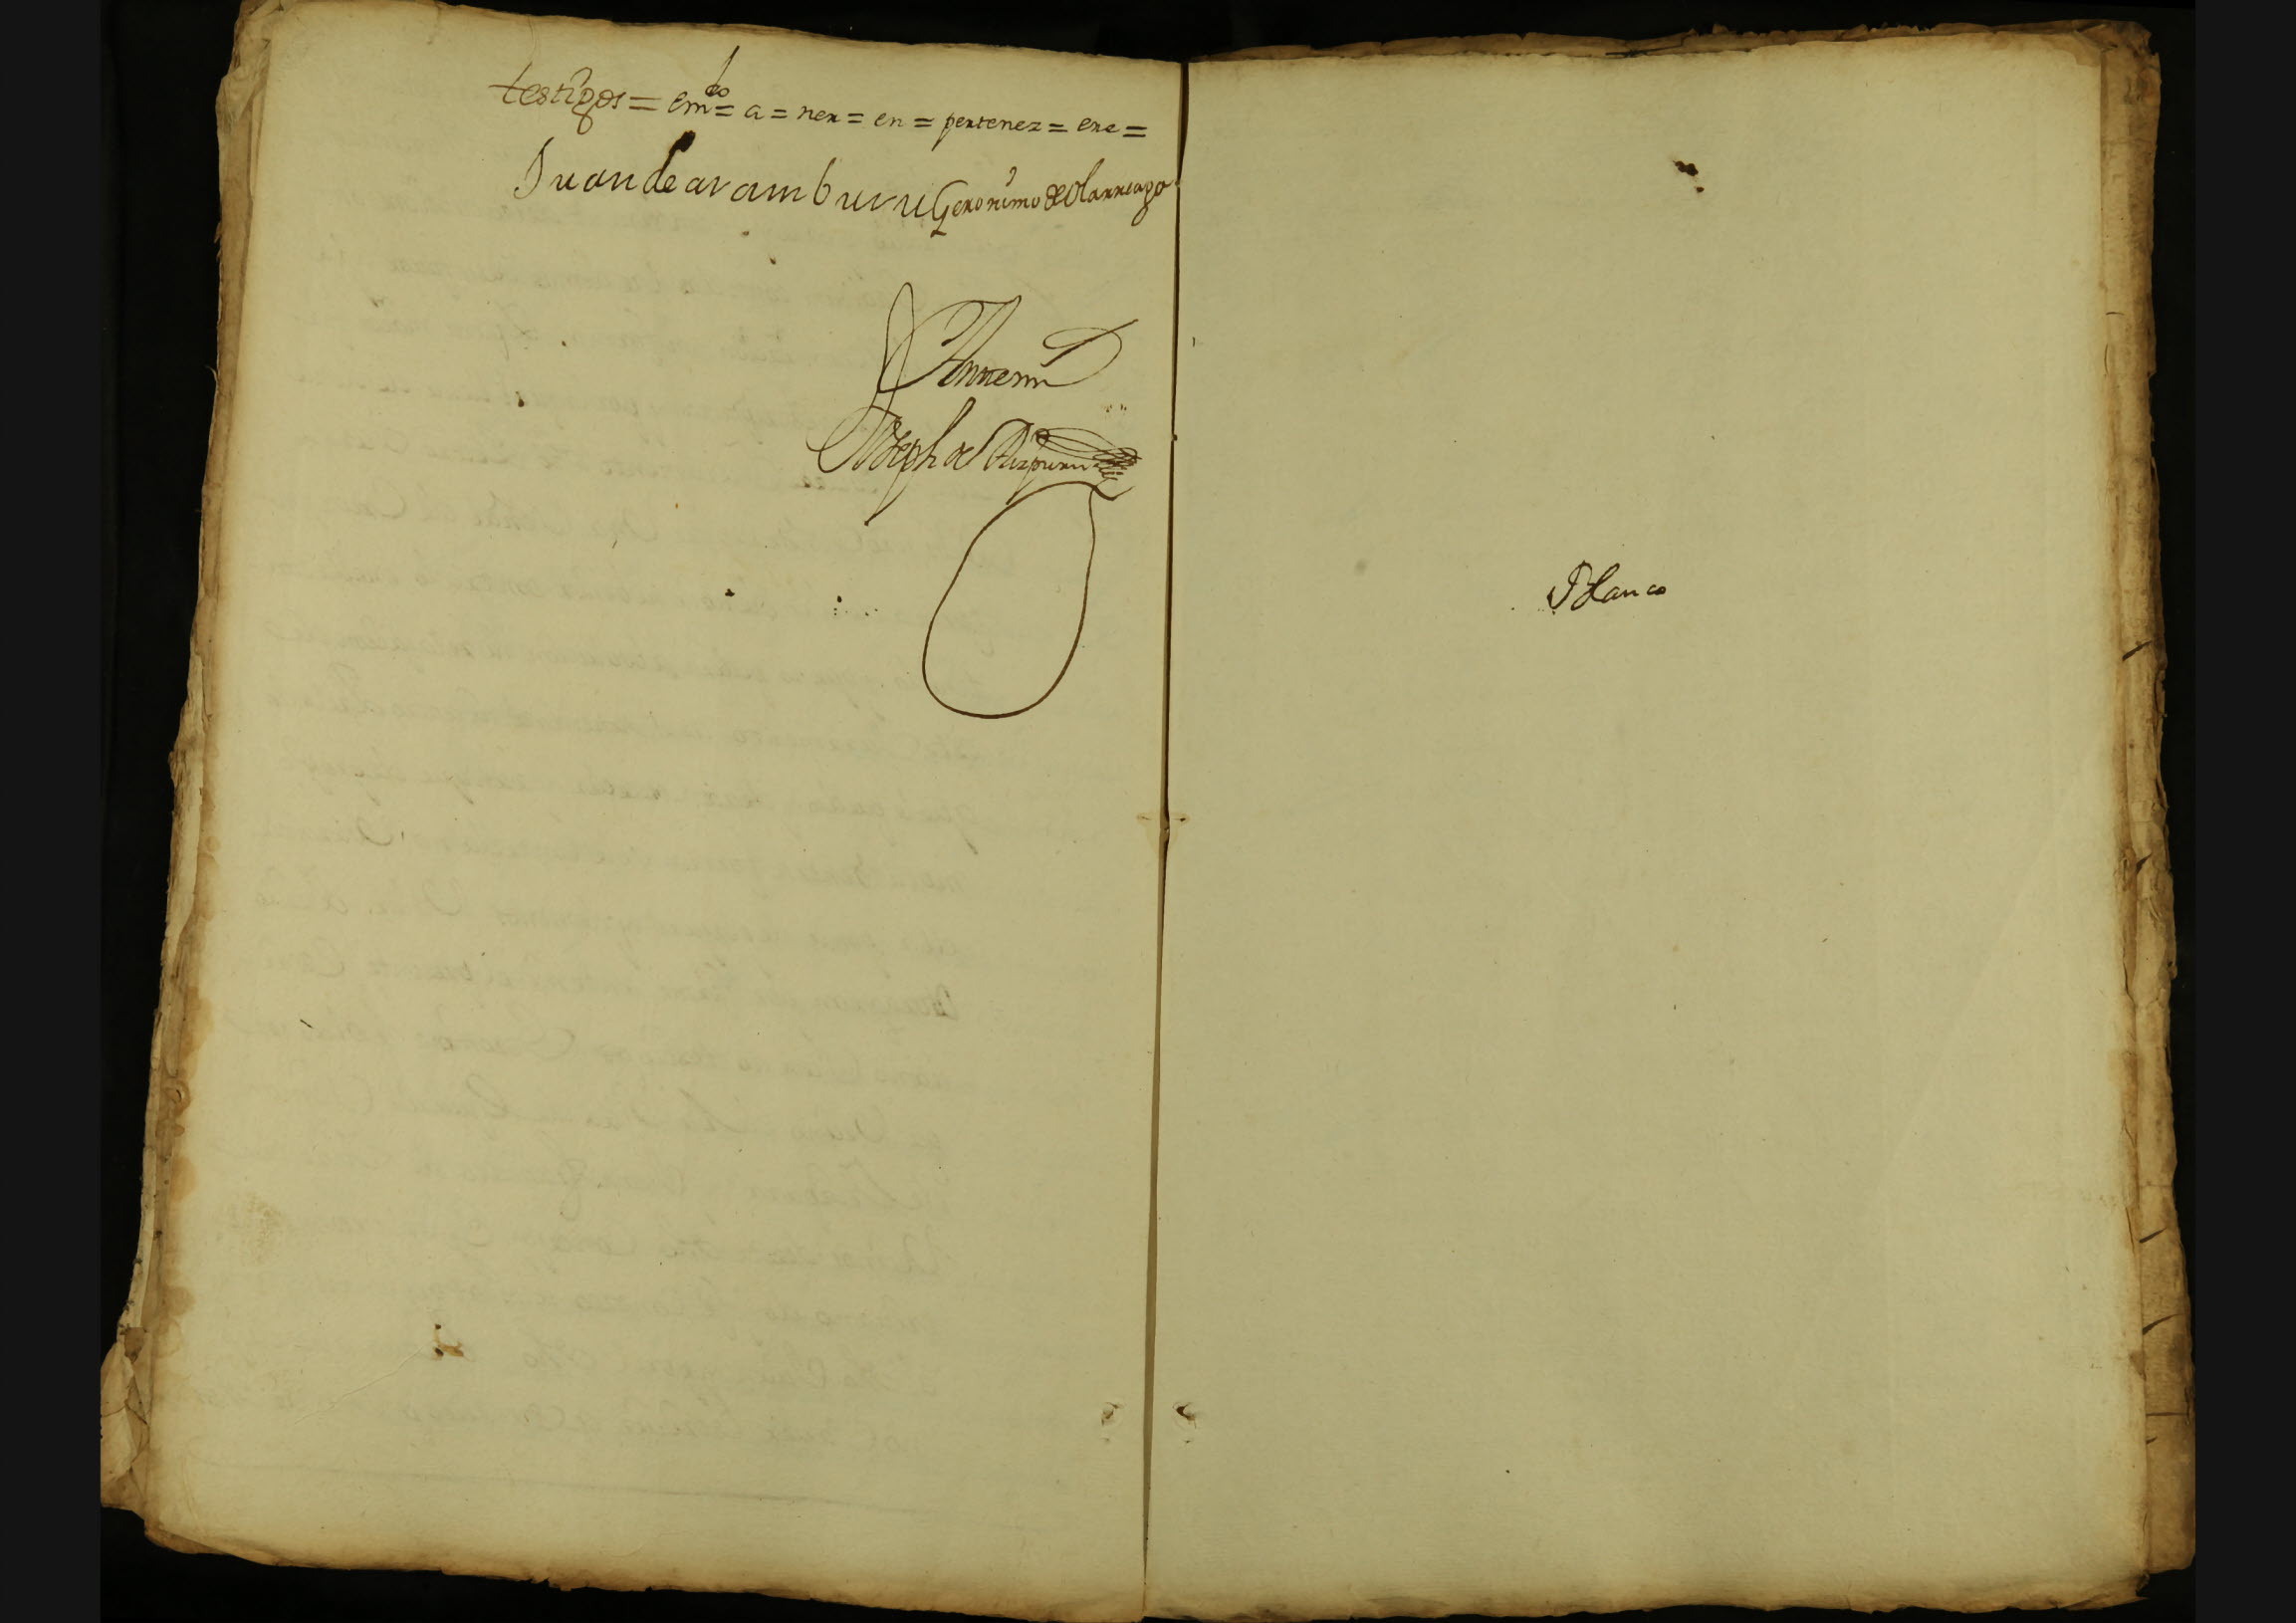 testigos = em.do = a = ner = en = pertenez = ere =
Juan de aramburu Geronimo de Olarreaga
Ante mi
Joseph de Aizpuru
Blanco